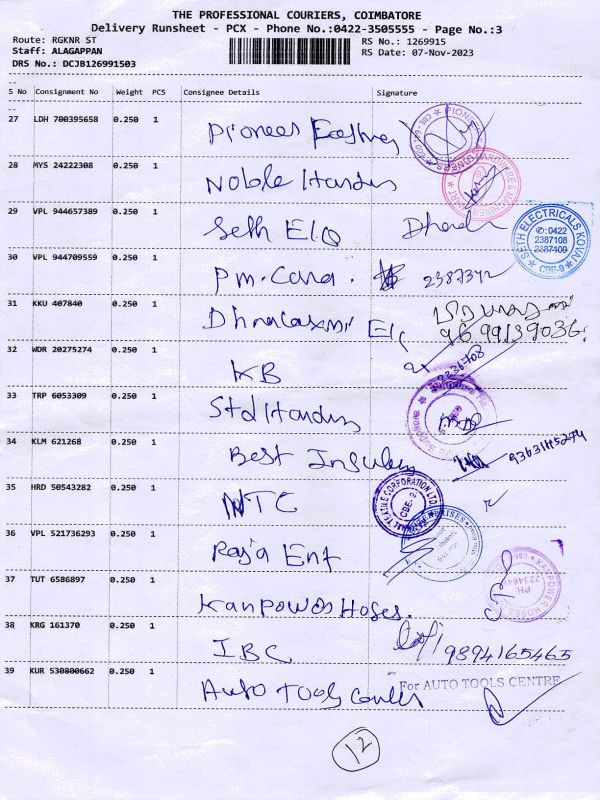 THE PROFESSIONAL COURIERS, COIMBATORE
Delivery Runsheet - PCX - Phone No.:0422-3505555 - Page No.:3
Route: RGKNR ST RS No.: 1269915
Staff: ALAGAPPAN RS Date: 07-Nov-2023
DRS No.: DCJB126991503
S No Consignment No Weight PCS Consignee Details Signature
27 LDH 700395658 0.250 1 Pioneer
28 MYS 24222308 0.250 1 Noble
29 VPL 944657389 0.250 1 Seth Ele
SETH ELECTRICALS KOVAI
✆:0422
2387108
2387109
CBE-9
30 VPL 944709559 0.250 1 P.M. Cara. 2387342
31 KKU 407840 0.250 1 Dhnalaxmi Ele
9699139036
32 WDR 20275274 0.250 1 KB 2236708
33 TRP 6053309 0.250 1 Std
34 KLM 621268 0.250 1 Best
35 HRD 50543282 0.250 1 NTC
CORPORATION LTD
CBE-9
36 VPL 521736293 0.250 1 Raja Ent
37 TUT 6586897 0.250 1 Kanpower Hoses.
KANPOWER HOSES
38 KRG 161370 0.250 1 IBC 9894165465
39 KUR 530800662 0.250 1 Auto Tools Center
For AUTO TOOLS CENTRE
12